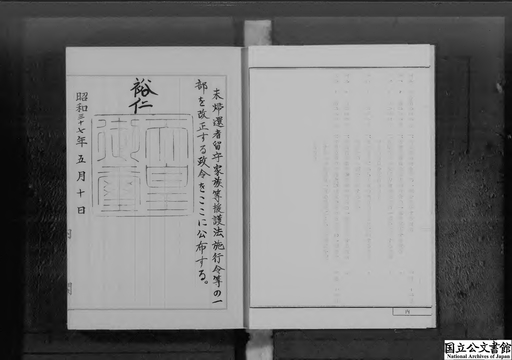 未帰還者留守家族等援護法施行令等の一
部を改正する政令をここに公布する。
裕仁
天皇
御璽
昭和三十七年五月十日
国立公文書館
National Archives of Japan